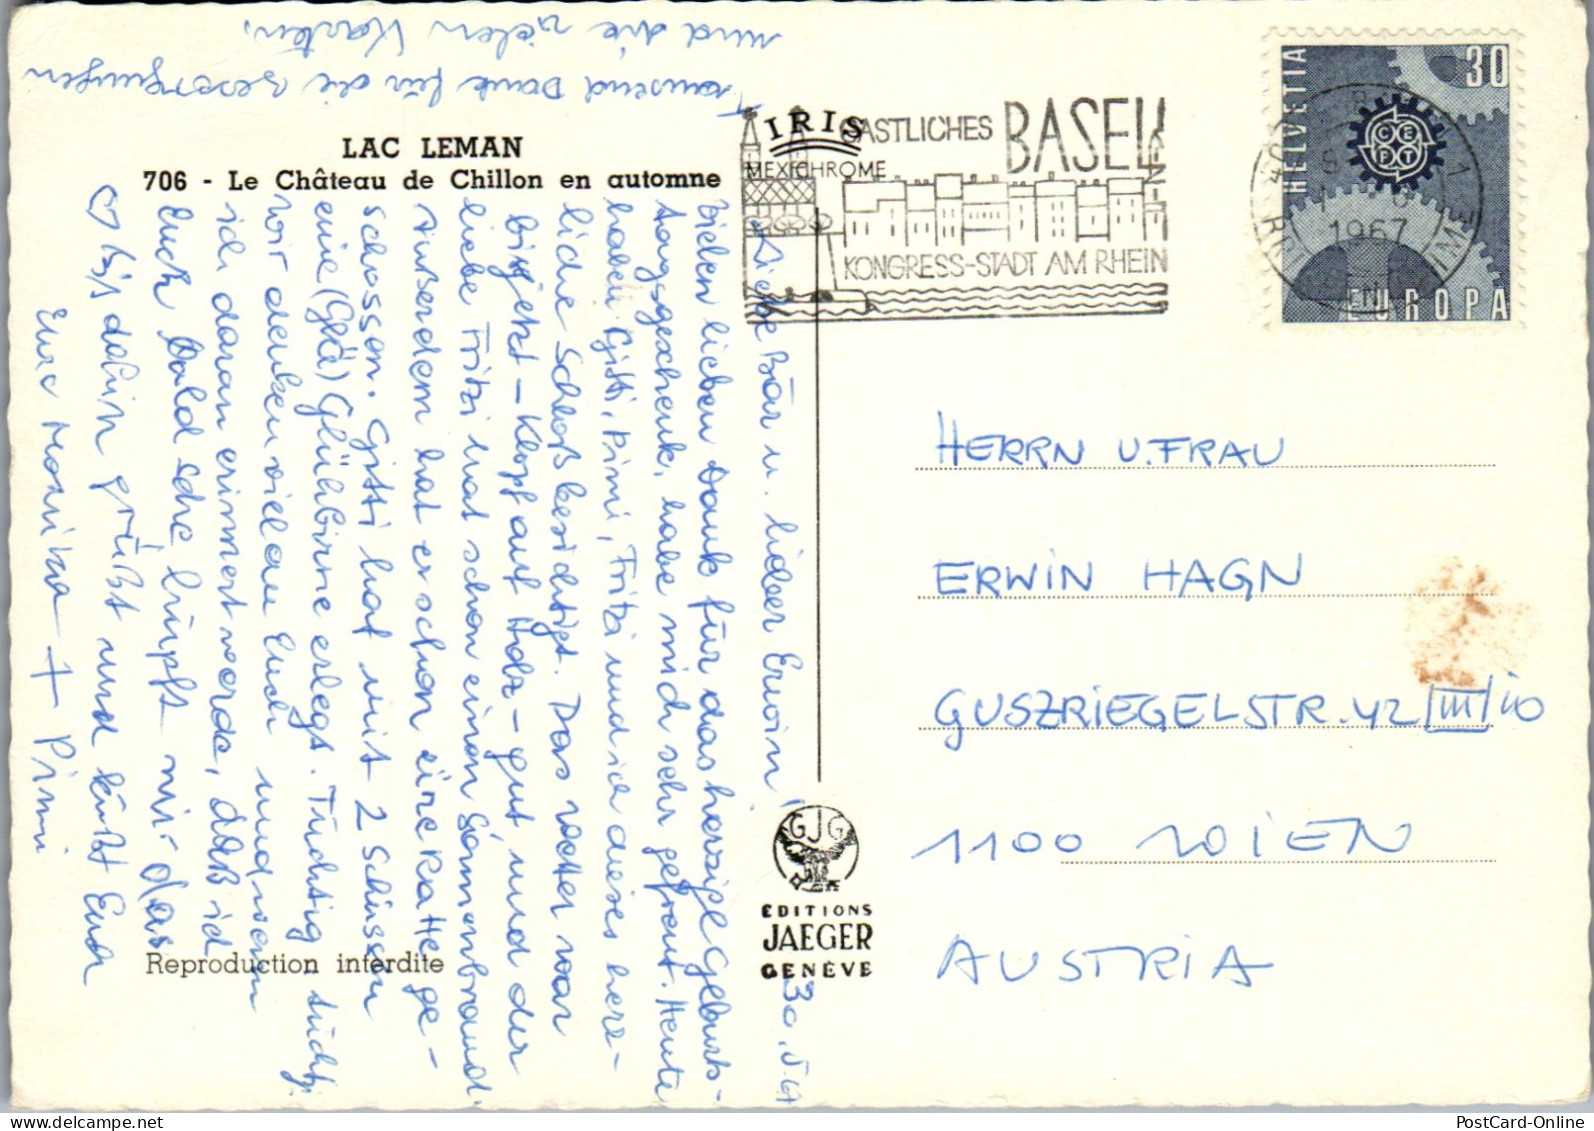 LAC LEMAN
706 - Le Château de Chillon en automne
IRIS
MEXICHROME
GASTLICHES BASEL
KONGRESS-STADT AM RHEIN
HELVETIA
30
CEPT
EUROPA
1967
30.5.67
Liebe Bär u. lieber Erwin!
Vielen lieben Dank für das herzige Geburts-
tagsgeschenk, habe mich sehr gefreut. Heute
haben Gitti, Pimi, Fritzi und ich dieses herr-
liche Schloß besichtigt. Das Wetter war
bis jetzt - Klopf auf Holz - gut und der
liebe Fritzi hat schon einen Sonnenbrand.
Außerdem hat er schon eine Katte ge-
schossen. Gitti hat mit 2 Schüssen
eine (Glü) Glühbirne erlegt. Tüchtig tüchtig
Wir denken viel an Euch und wenn
ich daran erinnert werde, daß ich
Euch bald sehe hüpft mir das
♡ Bis dahin grüßt und küßt Euch
Eure Monika + Pimi
Tausend Dank für die Besorgungen
und die vielen Karten.
HERRN U. FRAU
ERWIN HAGN
GUSZRIEGELSTR. 42/III/10
1100 WIEN
AUSTRIA
GJG
EDITIONS
JAEGER
GENÈVE
Reproduction interdite
PostCard-Online